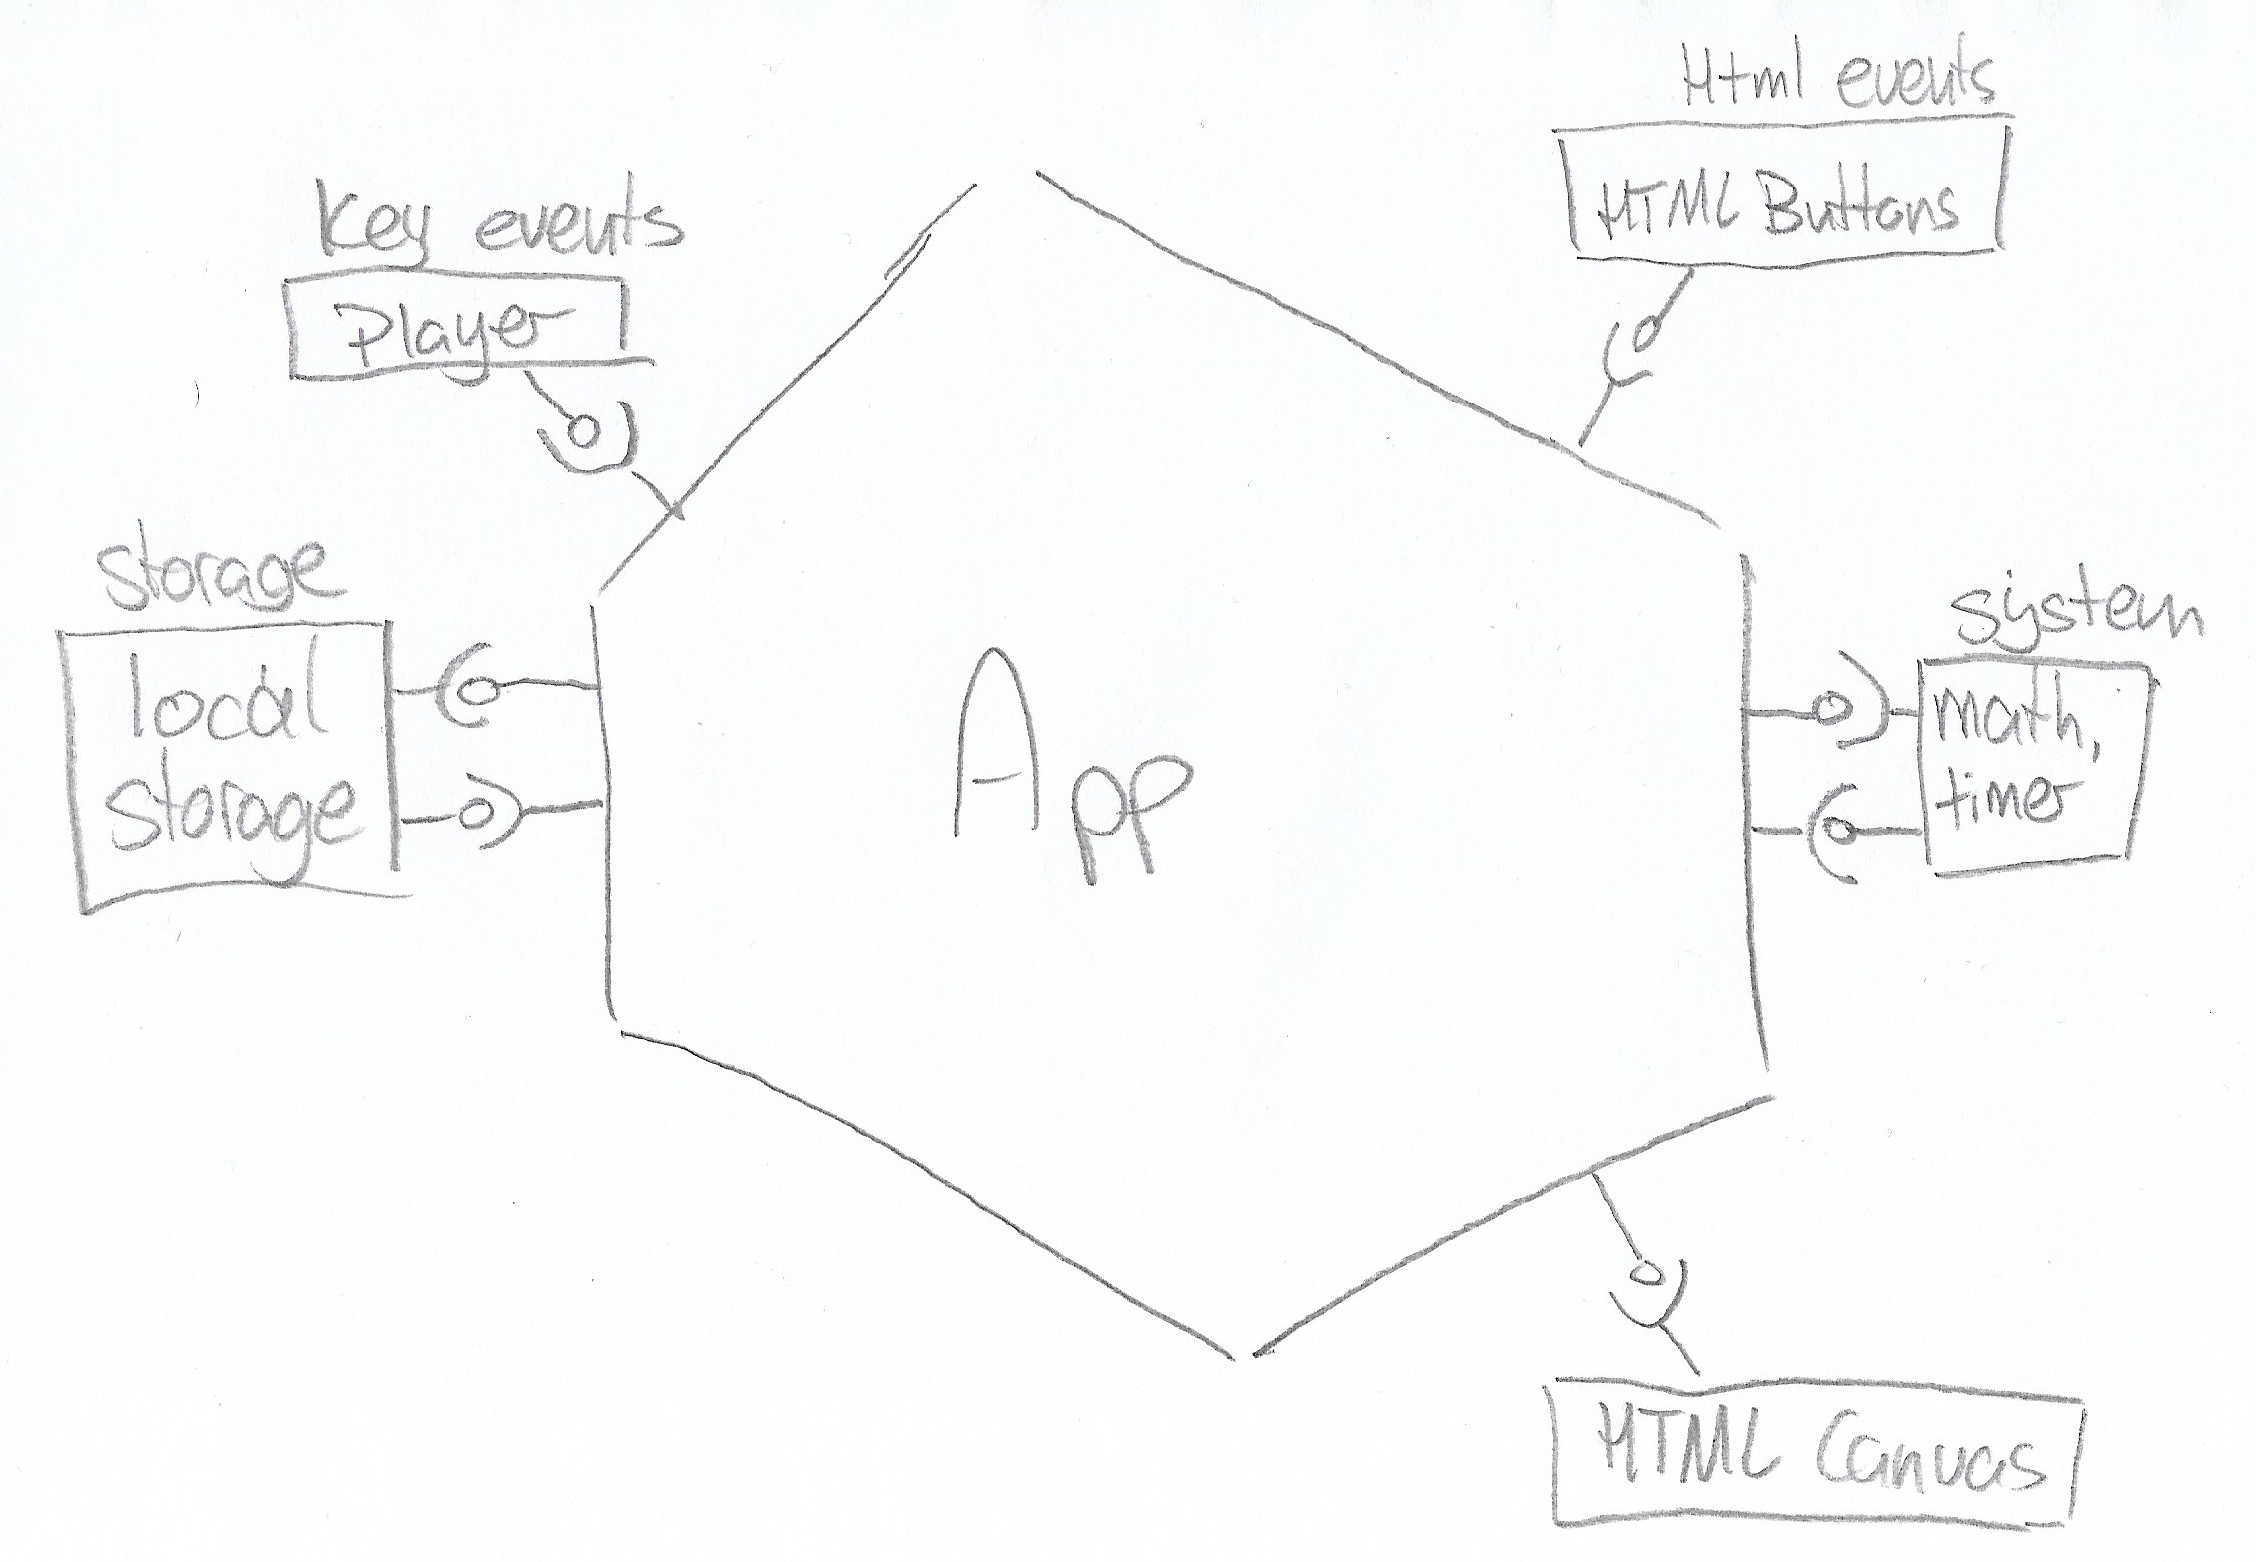 Html events
HTML Buttons
Key events
Player
storage
local
storage
App
system
math,
timer
HTML Canvas